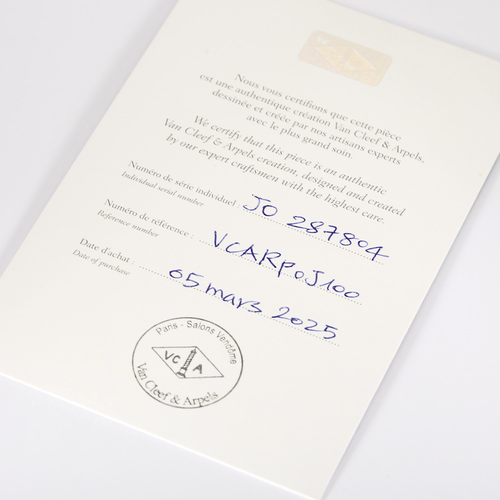 Nous vous certifions que cette pièce
est une authentique création Van Cleef & Arpels,
dessinée et créée par nos artisans experts
avec le plus grand soin.
We certify that this piece is an authentic
Van Cleef & Arpels creation, designed and created
by our expert craftsmen with the highest care.
Numéro de série individuel : JO 287804
Individual serial number
Numéro de référence : VCARP0J100
Reference number
Date d'achat : 05 mars 2025
Date of purchase
Paris - Salons Vendôme
VC A
Van Cleef & Arpels